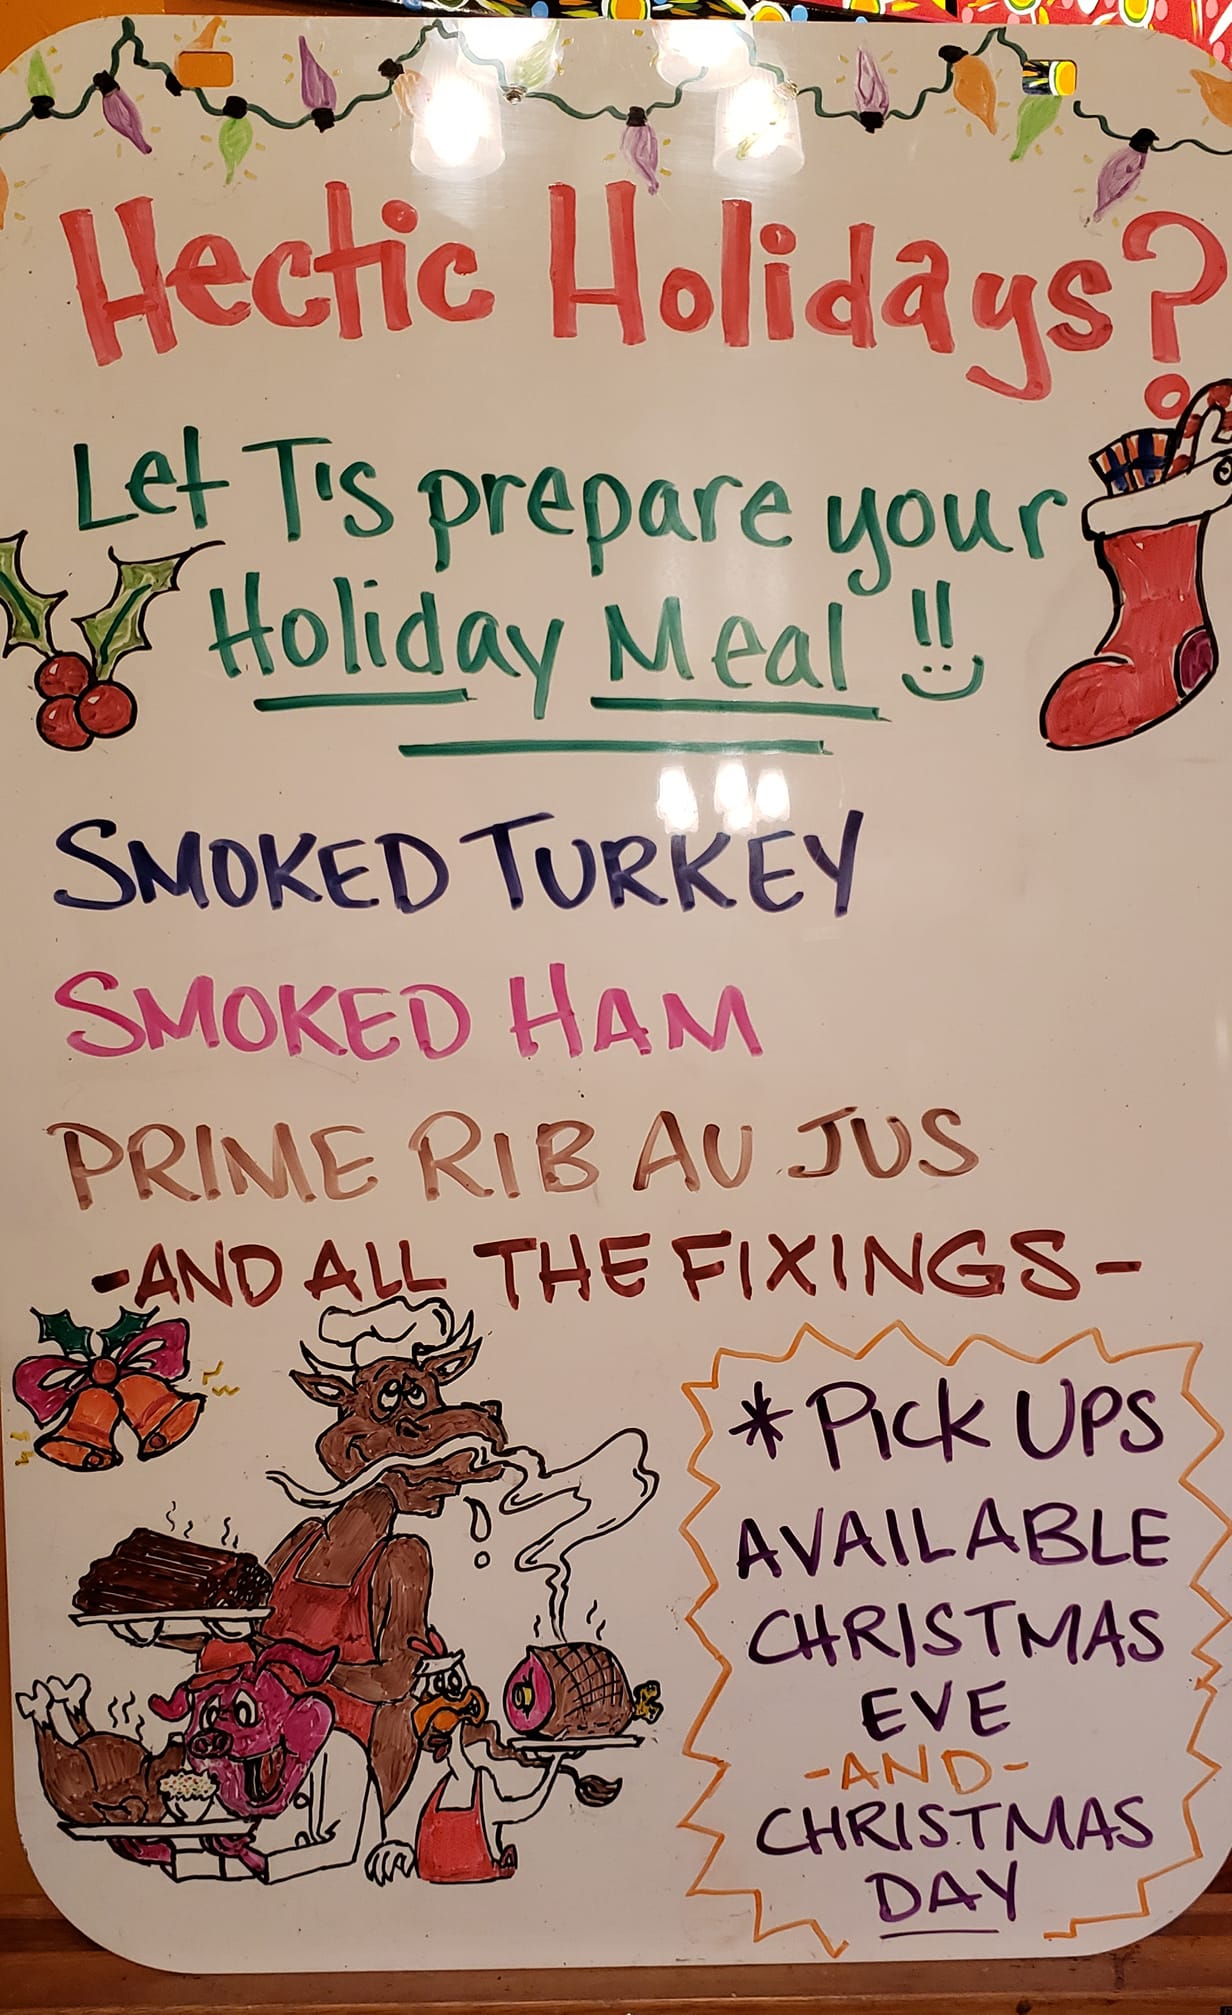 Hectic Holidays?
Let T's prepare your
Holiday Meal!!
SMOKED TURKEY
SMOKED HAM
PRIME RIB AU JUS
-AND ALL THE FIXINGS-
*PICK UPS
AVAILABLE
CHRISTMAS
EVE
-AND-
CHRISTMAS
DAY